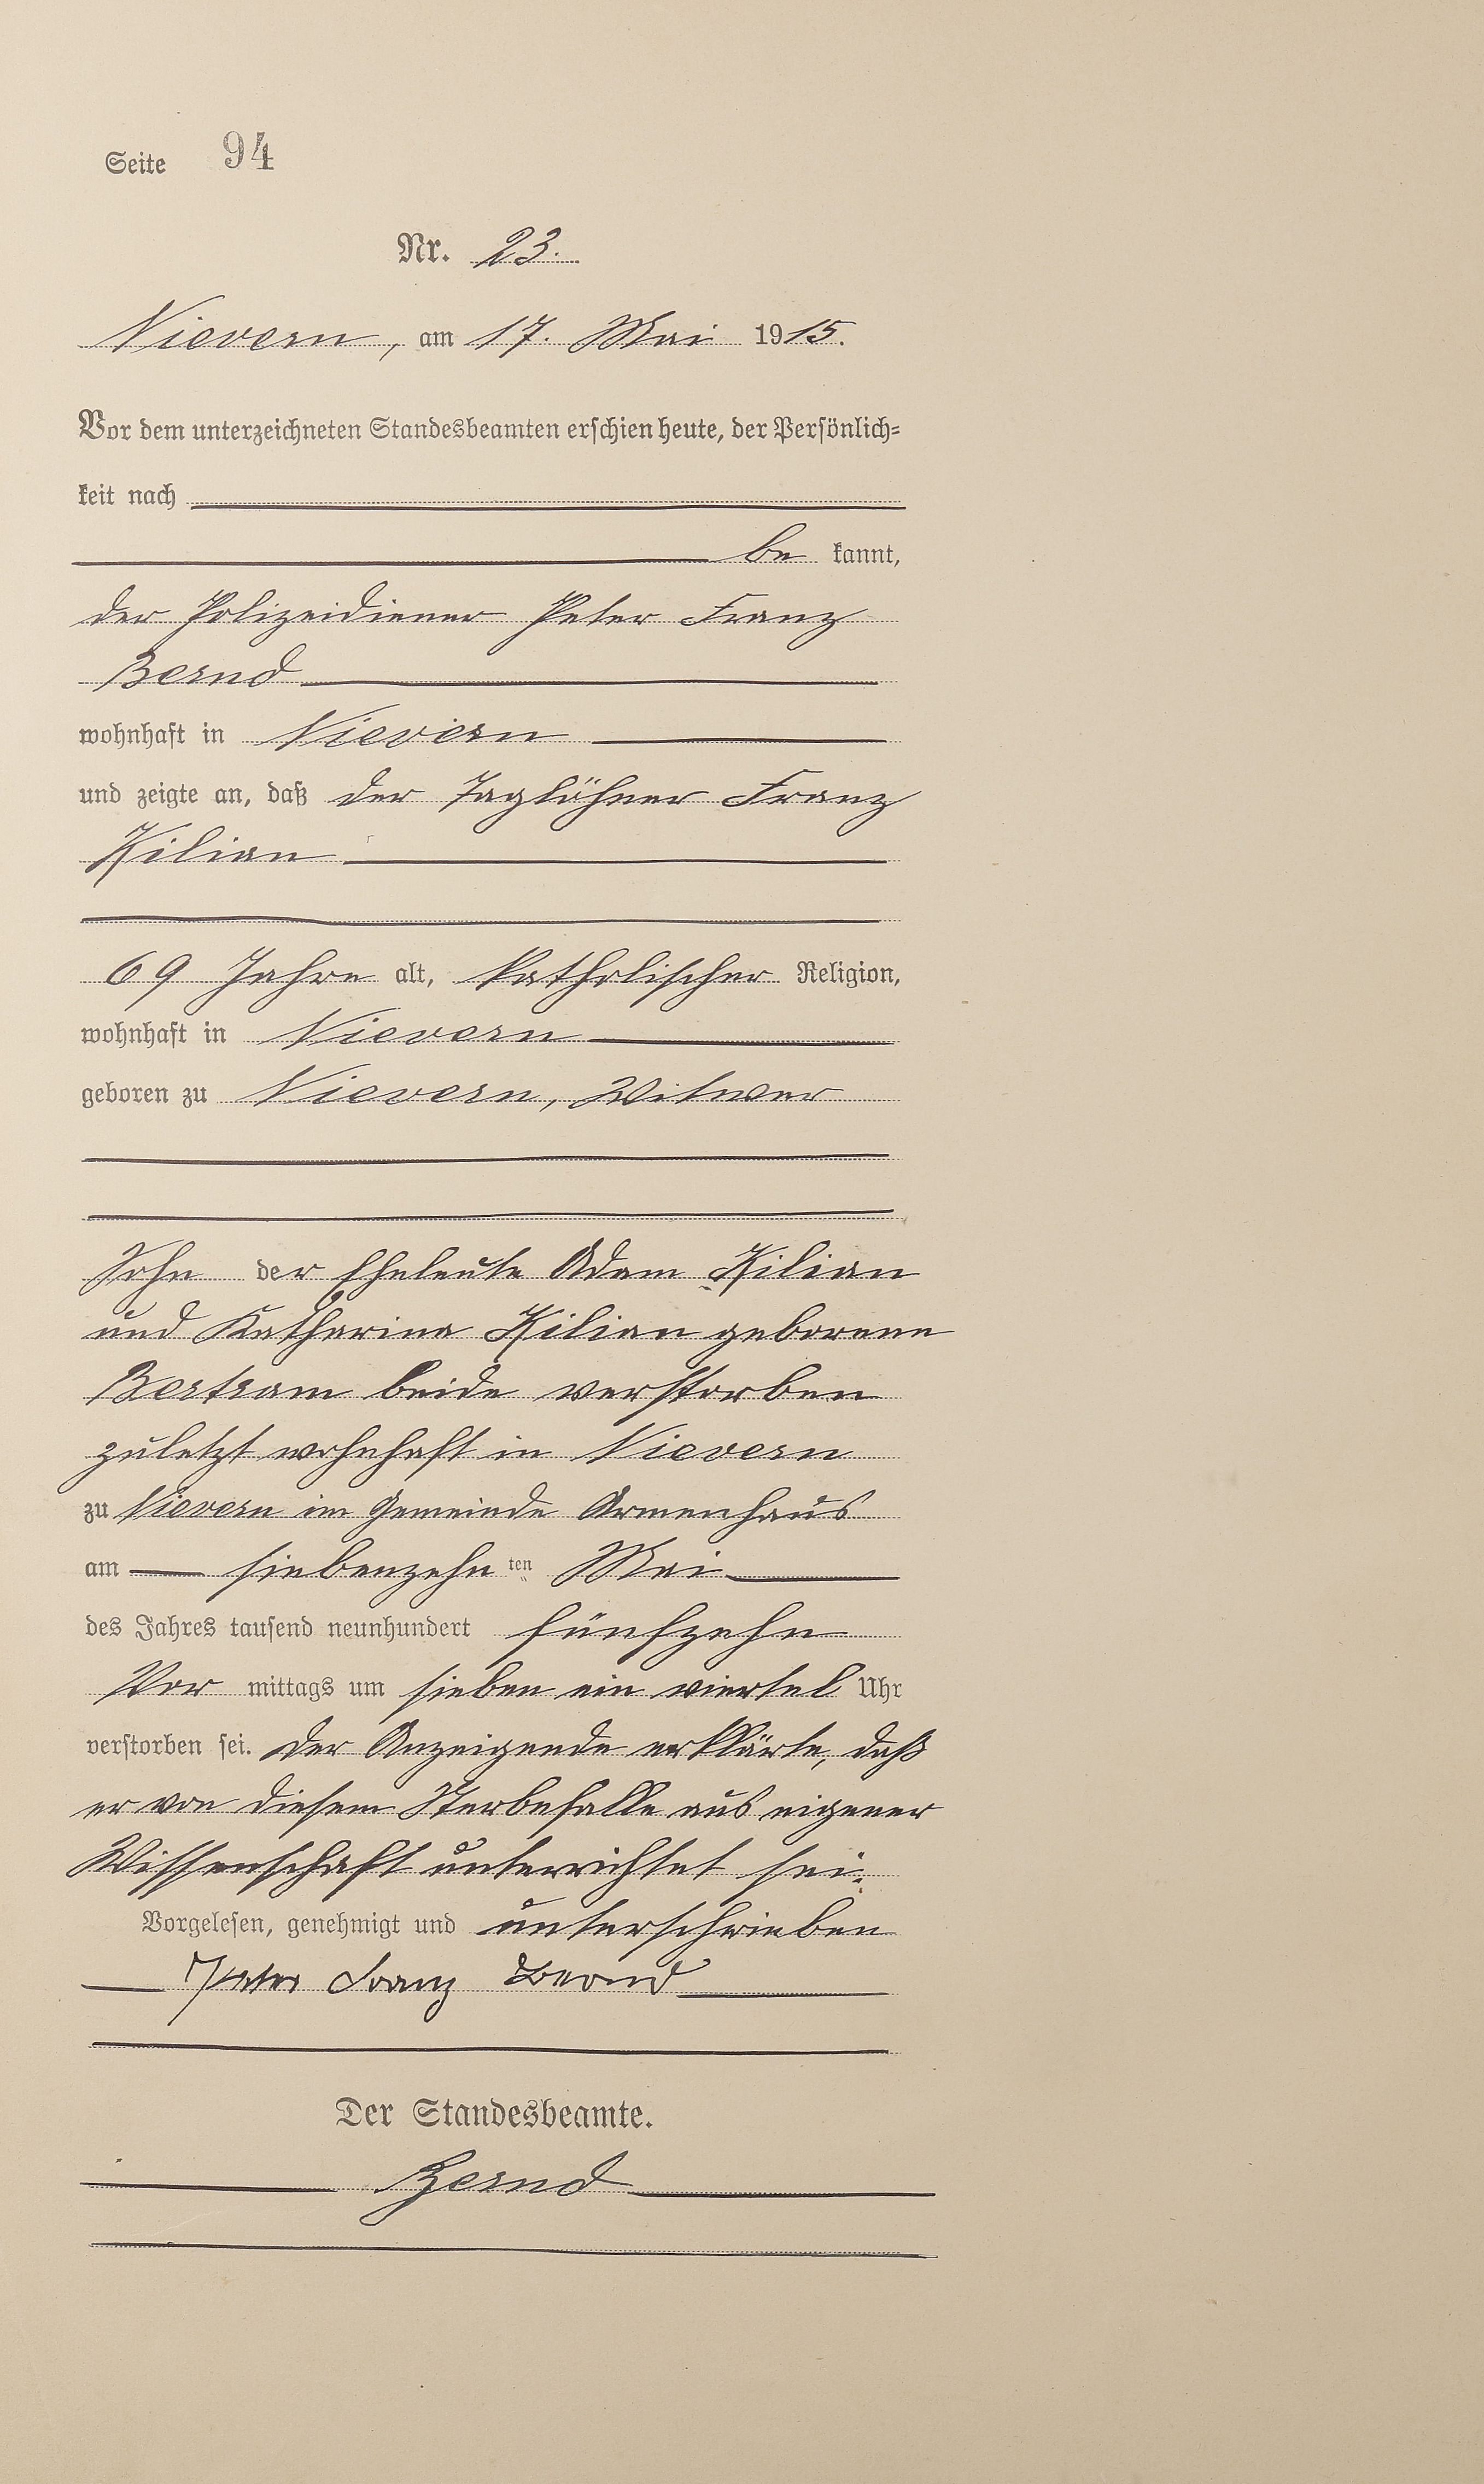 Seite 94
Nr. 23.
Nievern, am 17. Mai 1915.
Vor dem unterzeichneten Standesbeamten erschien heute, der Persönlich=
keit nach
be kannt,
der Polizeidiener Peter Franz
Bernd
wohnhaft in Nievern
und zeigte an, daß der Taglöhner Franz
Kilian
69 Jahre alt, katholischer Religion,
wohnhaft in Nievern
geboren zu Nievern, Witwer
Sohn der Eheleute Adam Kilian
und Katharina Kilian geborene
Bertram beide verstorben
zuletzt wohnhaft in Nievern
zu Nievern im Gemeinde Armenhaus
am siebenzehn ten Mai
des Jahres tausend neunhundert fünfzehn
Vor mittags um sieben ein viertel Uhr
verstorben sei. Der Anzeigende erklärte, daß
er von diesem Sterbefalle aus eigener
Wissenschaft unterrichtet sei.
Vorgelesen, genehmigt und unterschrieben
Peter Franz Bernd
Der Standesbeamte.
Bernd